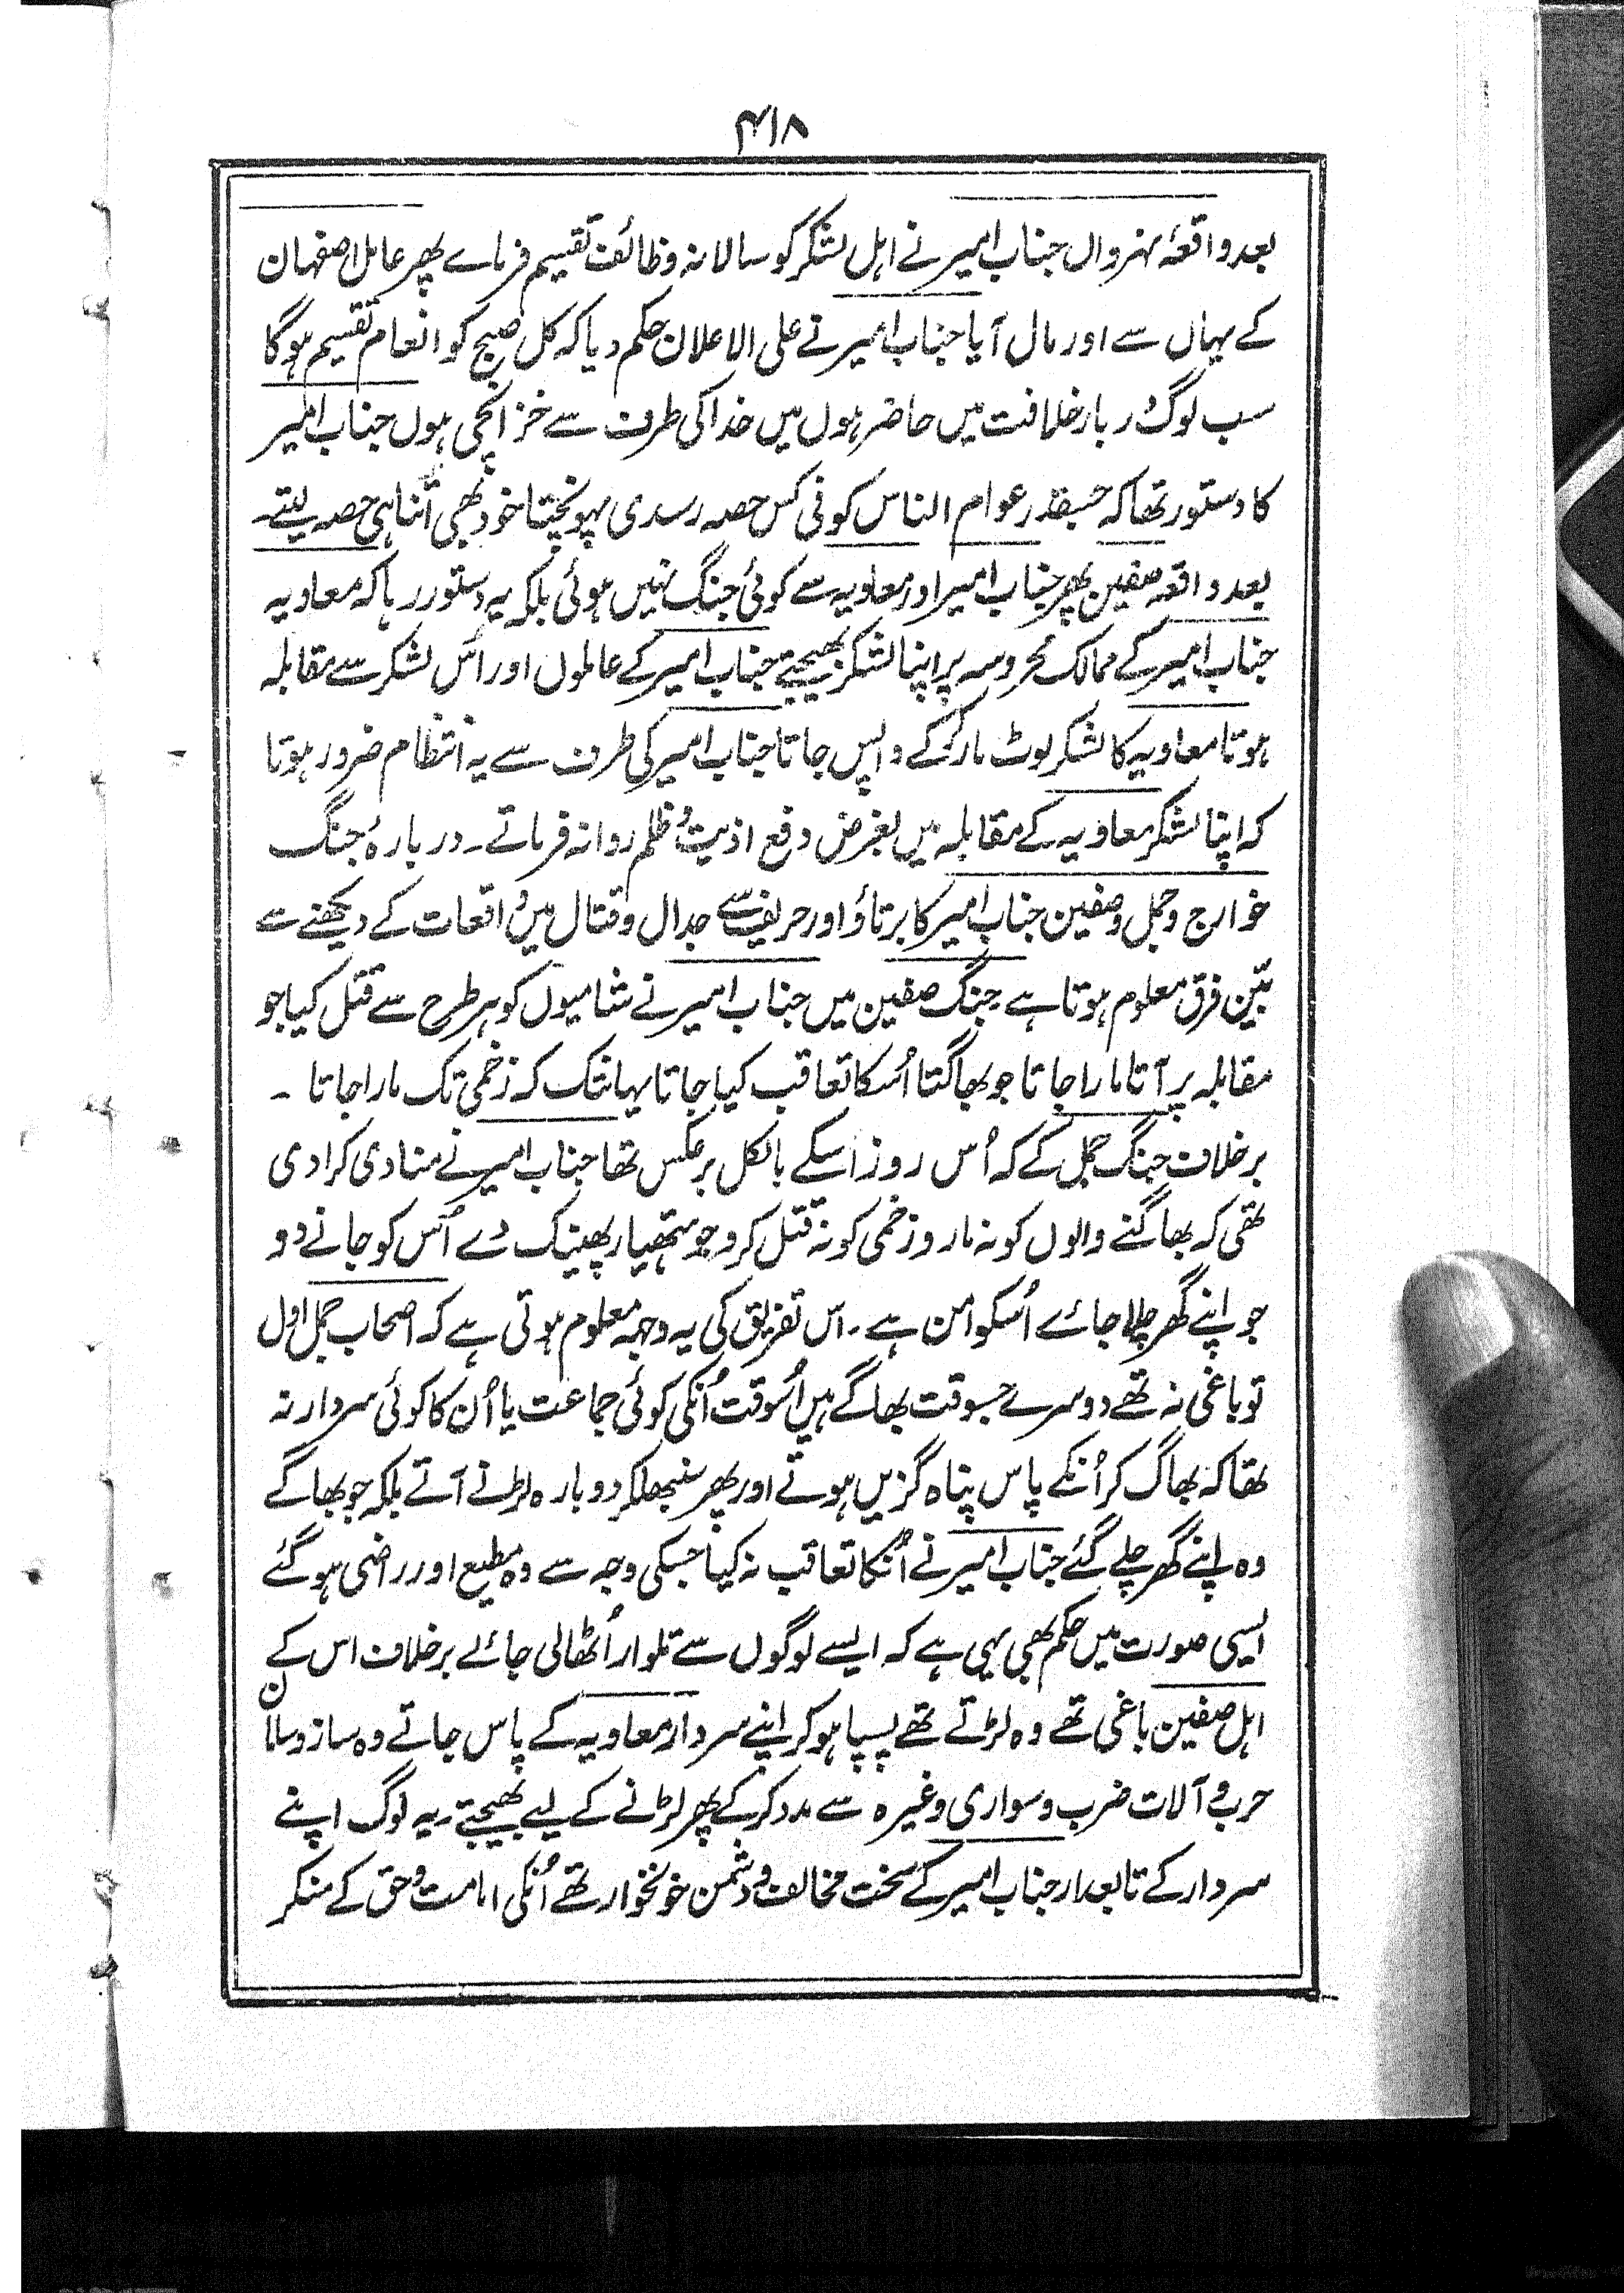 ۴۱۸
بعد واقعۂ نہروال جناب امیر نے اہل لشکر کو سالانہ وظائف تقسیم فرماے پھر عامل اصفہان
کے یہاں سے اور مال آیا جناب امیر نے علی الاعلان حکم دیا کہ کل صبح کو انعام تقسیم ہوگا
سب لوگ دربار خلافت میں حاضر ہوں میں خدا کی طرف سے خزانچی ہوں جناب امیر
کا دستور تھا کہ جسقدر عوام الناس کو فی کس حصہ رسدی پہونچتا خود بھی اُتنا ہی حصہ لیتے۔
بعد واقعہ صفین پھر جناب امیر اور معاویہ سے کوئی جنگ نہیں ہوئی بلکہ یہ دستور رہا کہ معاویہ
جناب امیر کے ممالک محروسہ پر اپنا لشکر بھیجتے جناب امیر کے عاملوں اور اُس لشکر سے مقابلہ
ہوتا معاویہ کا لشکر لوٹ مار کرکے واپس جاتا جناب امیر کی طرف سے یہ انتظام ضرور ہوتا
کہ اپنا لشکر معاویہ کے مقابلہ میں بغرض دفع اذیت و ظلم روانہ فرماتے۔ دربارۂ جنگ
خوارج و جمل و صفین جناب امیر کا برتاؤ اور حریف سے جدال و قتال میں واقعات کے دیکھنے سے
بیّن فرق معلوم ہوتا ہے جنگ صفین میں جناب امیر نے شامیوں کو ہر طرح سے قتل کیا جو
مقابلہ پر آتا مارا جاتا جو بھاگتا اُسکا تعاقب کیا جاتا یہانتک کہ زخمی تک مارا جاتا ۔
برخلاف جنگ جمل کے کہ اُس روز اسکے بالکل برعکس تھا جناب امیر نے منادی کرادی
تھی کہ بھاگنے والوں کو نہ مارو زخمی کو نہ قتل کرو جو ہتھیار پھینک دے اُس کو جانے دو
جو اپنے گھر چلا جائے اُسکو امن ہے۔ اس تفریق کی یہ وجہ معلوم ہوتی ہے کہ اصحاب جمل اول
تو باغی نہ تھے دوسرے جسوقت بھاگے ہیں اُسوقت اُنکی کوئی جماعت یا اُن کا کوئی سردار نہ
تھا کہ بھاگ کر اُنکے پاس پناہ گزیں ہوتے اور پھر سنبھلکر دوبارہ لڑنے آتے بلکہ جو بھاگے
وہ اپنے گھر چلے گئے جناب امیر نے اُنکا تعاقب نہ کیا جسکی وجہ سے وہ مطیع اور رضی ہو گئے
ایسی صورت میں حکم بھی یہی ہے کہ ایسے لوگوں سے تلوار اُٹھالی جائے برخلاف اس کے
اہل صفین باغی تھے وہ لڑتے تھے پسپا ہو کر اپنے سردار معاویہ کے پاس جاتے وہ ساز و سامان
حرب و آلات ضرب و سواری وغیرہ سے مدد کرکے پھر لڑنے کے لیے بھیجتے۔ یہ لوگ اپنے
سردار کے تابعدار جناب امیر کے سخت مخالف و دشمن خونخوار تھے اُنکی امامت و حق کے منکر